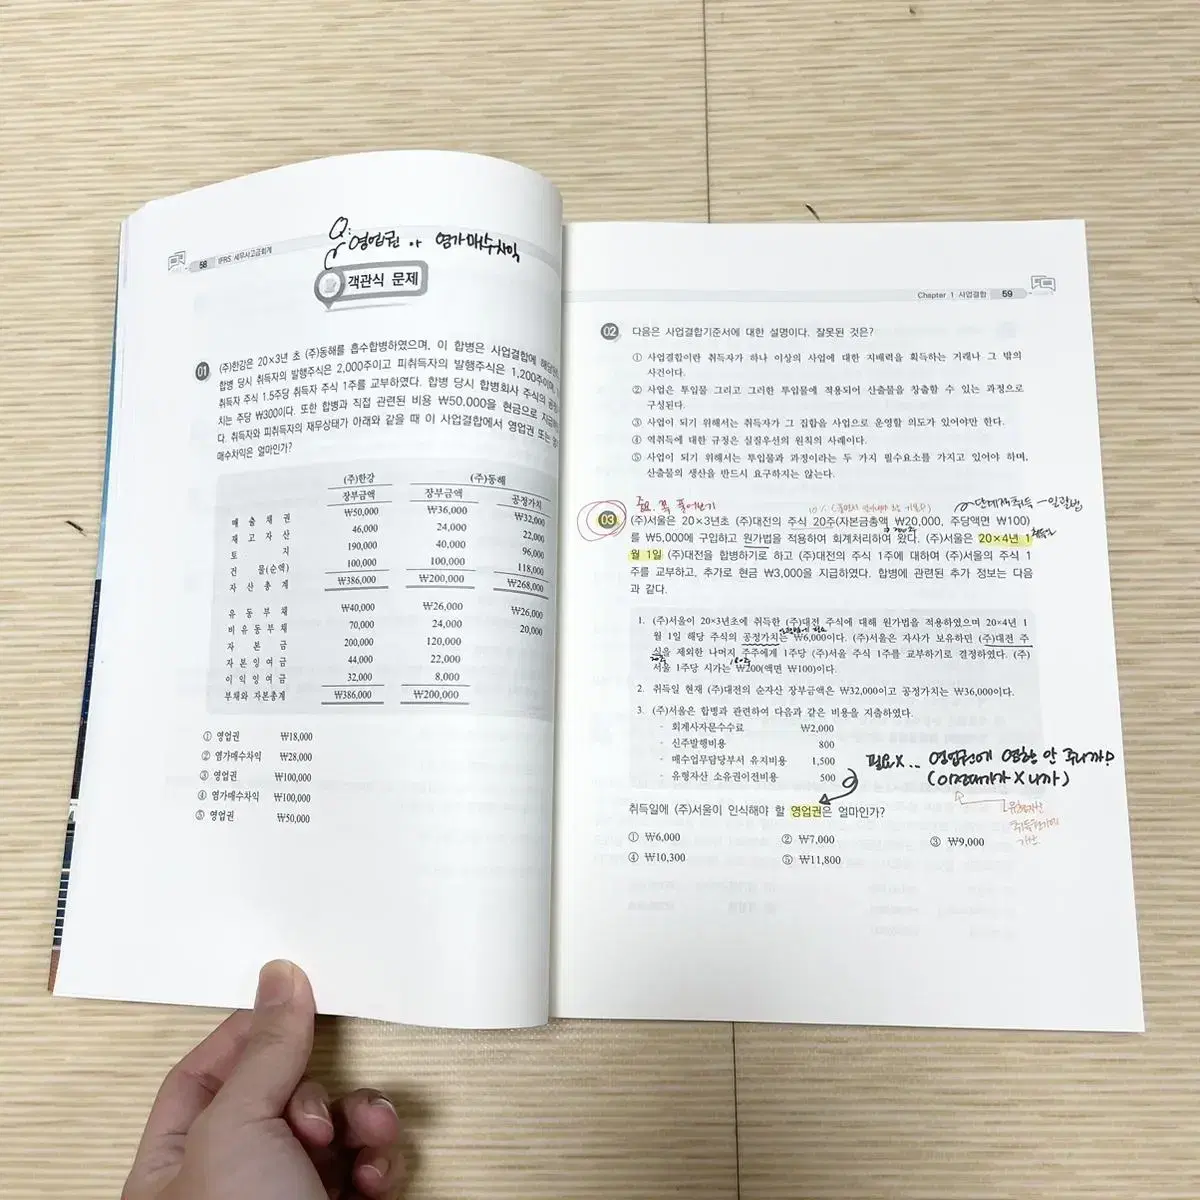 58 IFRS 세무사고급회계
Q. 영업권 or 염가매수차익
객관식 문제
01 (주)한강은 20×3년 초 (주)동해를 흡수합병하였으며, 이 합병은 사업결합에 해당
합병 당시 취득자의 발행주식은 2,000주이고 피취득자의 발행주식은 1,200주이며,
취득자 주식 1.5주당 취득자 주식 1주를 교부하였다. 합병 당시 합병회사 주식의 공정
치는 주당 ₩300이다. 또한 합병과 직접 관련된 비용 ₩50,000을 현금으로 지급
다. 취득자와 피취득자의 재무상태가 아래와 같을 때 이 사업결합에서 영업권 또는
매수차익은 얼마인가?
(주)한강 (주)동해
장부금액 장부금액 공정가치
매출채권 ₩50,000 ₩36,000 ₩32,000
재고자산 46,000 24,000 22,000
토지 190,000 40,000 96,000
건물(순액) 100,000 100,000 118,000
자산총계 ₩386,000 ₩200,000 ₩268,000
유동부채 ₩40,000 ₩26,000 ₩26,000
비유동부채 70,000 24,000 20,000
자본금 200,000 120,000
자본잉여금 44,000 22,000
이익잉여금 32,000 8,000
부채와 자본총계 ₩386,000 ₩200,000
① 영업권 ₩18,000
② 염가매수차익 ₩28,000
③ 영업권 ₩100,000
④ 염가매수차익 ₩100,000
⑤ 영업권 ₩50,000
Chapter 1 사업결합 59
02 다음은 사업결합기준서에 대한 설명이다. 잘못된 것은?
① 사업결합이란 취득자가 하나 이상의 사업에 대한 지배력을 획득하는 거래나 그 밖의
사건이다.
② 사업은 투입물 그리고 그러한 투입물에 적용되어 산출물을 창출할 수 있는 과정으로
구성된다.
③ 사업이 되기 위해서는 취득자가 그 집합을 사업으로 운영할 의도가 있어야만 한다.
④ 역취득에 대한 규정은 실질우선의 원칙의 사례이다.
⑤ 사업이 되기 위해서는 투입물과 과정이라는 두 가지 필수요소를 가지고 있어야 하며,
산출물의 생산을 반드시 요구하지는 않는다.
중요. 꼭 풀어보기
단계적취득 - 일괄법
03 (주)서울은 20×3년초 (주)대전의 주식 20주(자본금총액 ₩20,000, 주당액면 ₩100)
를 ₩5,000에 구입하고 원가법을 적용하여 회계처리하여 왔다. (주)서울은 20×4년 1
월 1일 (주)대전을 합병하기로 하고 (주)대전의 주식 1주에 대하여 (주)서울의 주식 1
주를 교부하고, 추가로 현금 ₩3,000을 지급하였다. 합병에 관련된 추가 정보는 다음
과 같다.
1. (주)서울이 20×3년초에 취득한 (주)대전 주식에 대해 원가법을 적용하였으며 20×4년 1
월 1일 해당 주식의 공정가치는 ₩6,000이다. (주)서울은 자사가 보유하던 (주)대전 주
식을 제외한 나머지 주주에게 1주당 (주)서울 주식 1주를 교부하기로 결정하였다. (주)
서울 1주당 시가는 ₩200(액면 ₩100)이다.
2. 취득일 현재 (주)대전의 순자산 장부금액은 ₩32,000이고 공정가치는 ₩36,000이다.
3. (주)서울은 합병과 관련하여 다음과 같은 비용을 지출하였다.
- 회계사자문수수료 ₩2,000
- 신주발행비용 800
- 매수업무담당부서 유지비용 1,500
- 유형자산 소유권이전비용 500
필요X.. 영업권에 영향 안 주니까?
(이전대가 X니까)
유형자산
취득원가에
가산
취득일에 (주)서울이 인식해야 할 영업권은 얼마인가?
① ₩6,000 ② ₩7,000 ③ ₩9,000
④ ₩10,300 ⑤ ₩11,800